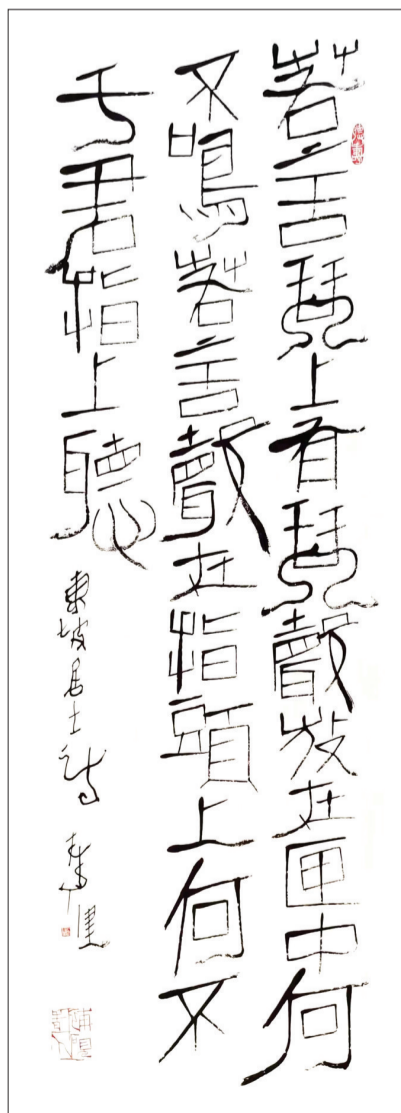 若言琴上有琴聲放在匣中何
不鳴若言聲在指頭上何不
于君指上聽
東坡居士詩